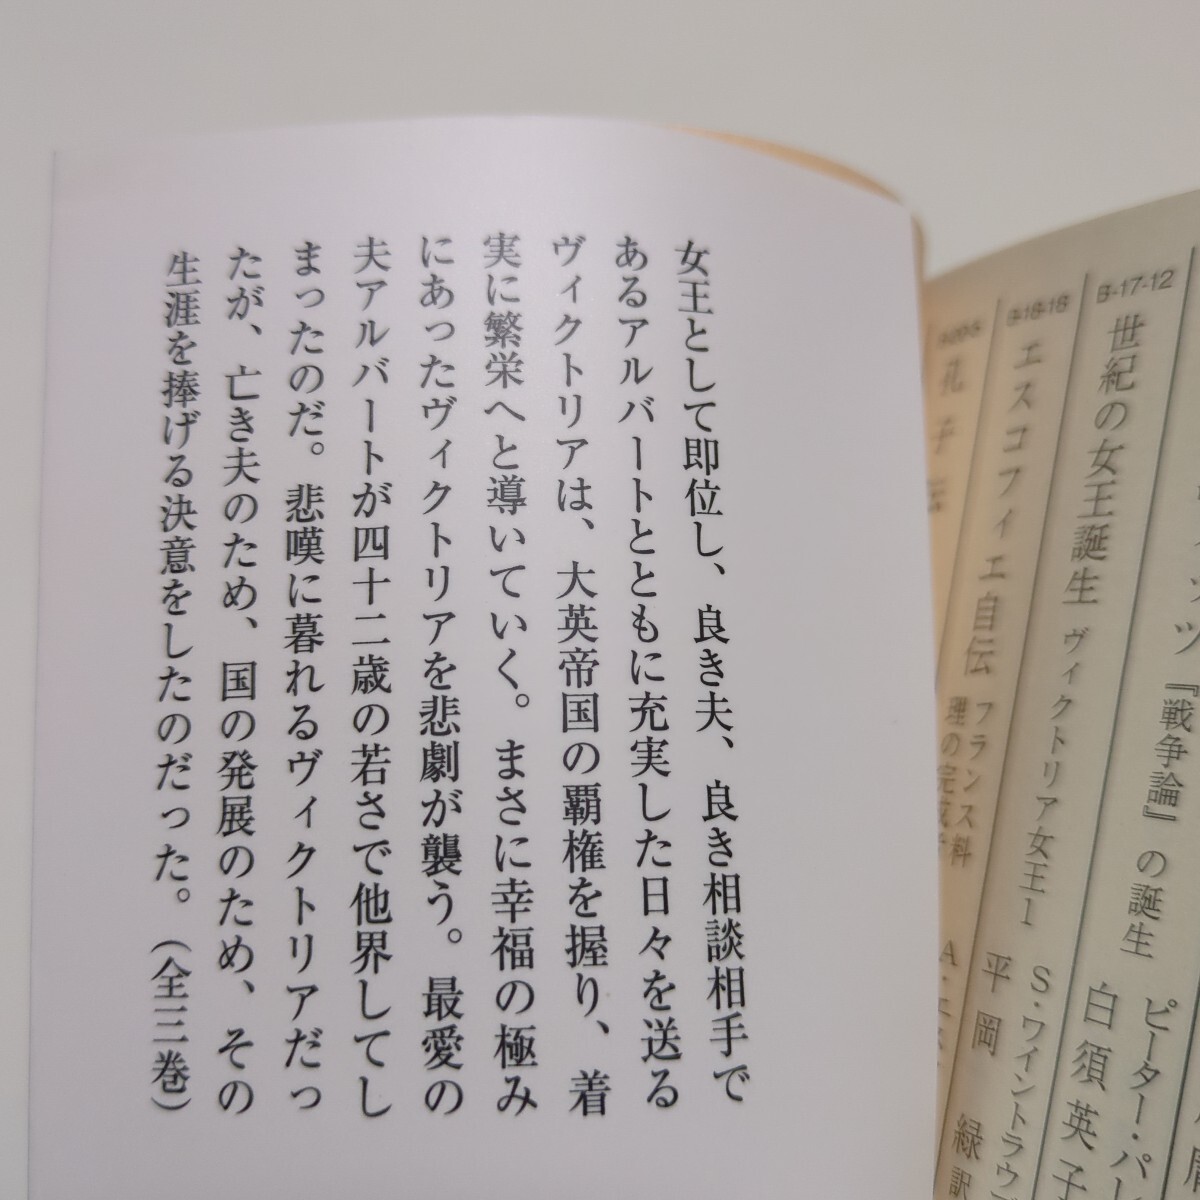 女王として即位し、良き夫、良き相談相手で
あるアルバートとともに充実した日々を送る
ヴィクトリアは、大英帝国の覇権を握り、着
実に繁栄へと導いていく。まさに幸福の極み
にあったヴィクトリアを悲劇が襲う。最愛の
夫アルバートが四十二歳の若さで他界してし
まったのだ。悲嘆に暮れるヴィクトリアだっ
たが、亡き夫のため、国の発展のため、その
生涯を捧げる決意をしたのだった。（全三巻）
『戦争論』の誕生 ピーター・パ
白須英子
B-17-12 世紀の女王誕生 ヴィクトリア女王1 S・ワイントラウブ
平岡緑訳
B-18-18 エスコフィエ自伝 フランス料
理の完成者
孔子伝